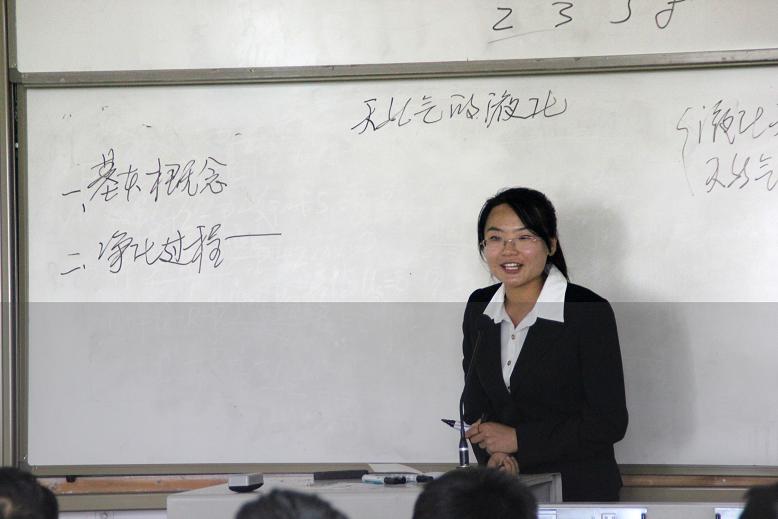 2 3 5 8
天然气的液化
一、基本概念
二、净化过程——
{液化
天然气